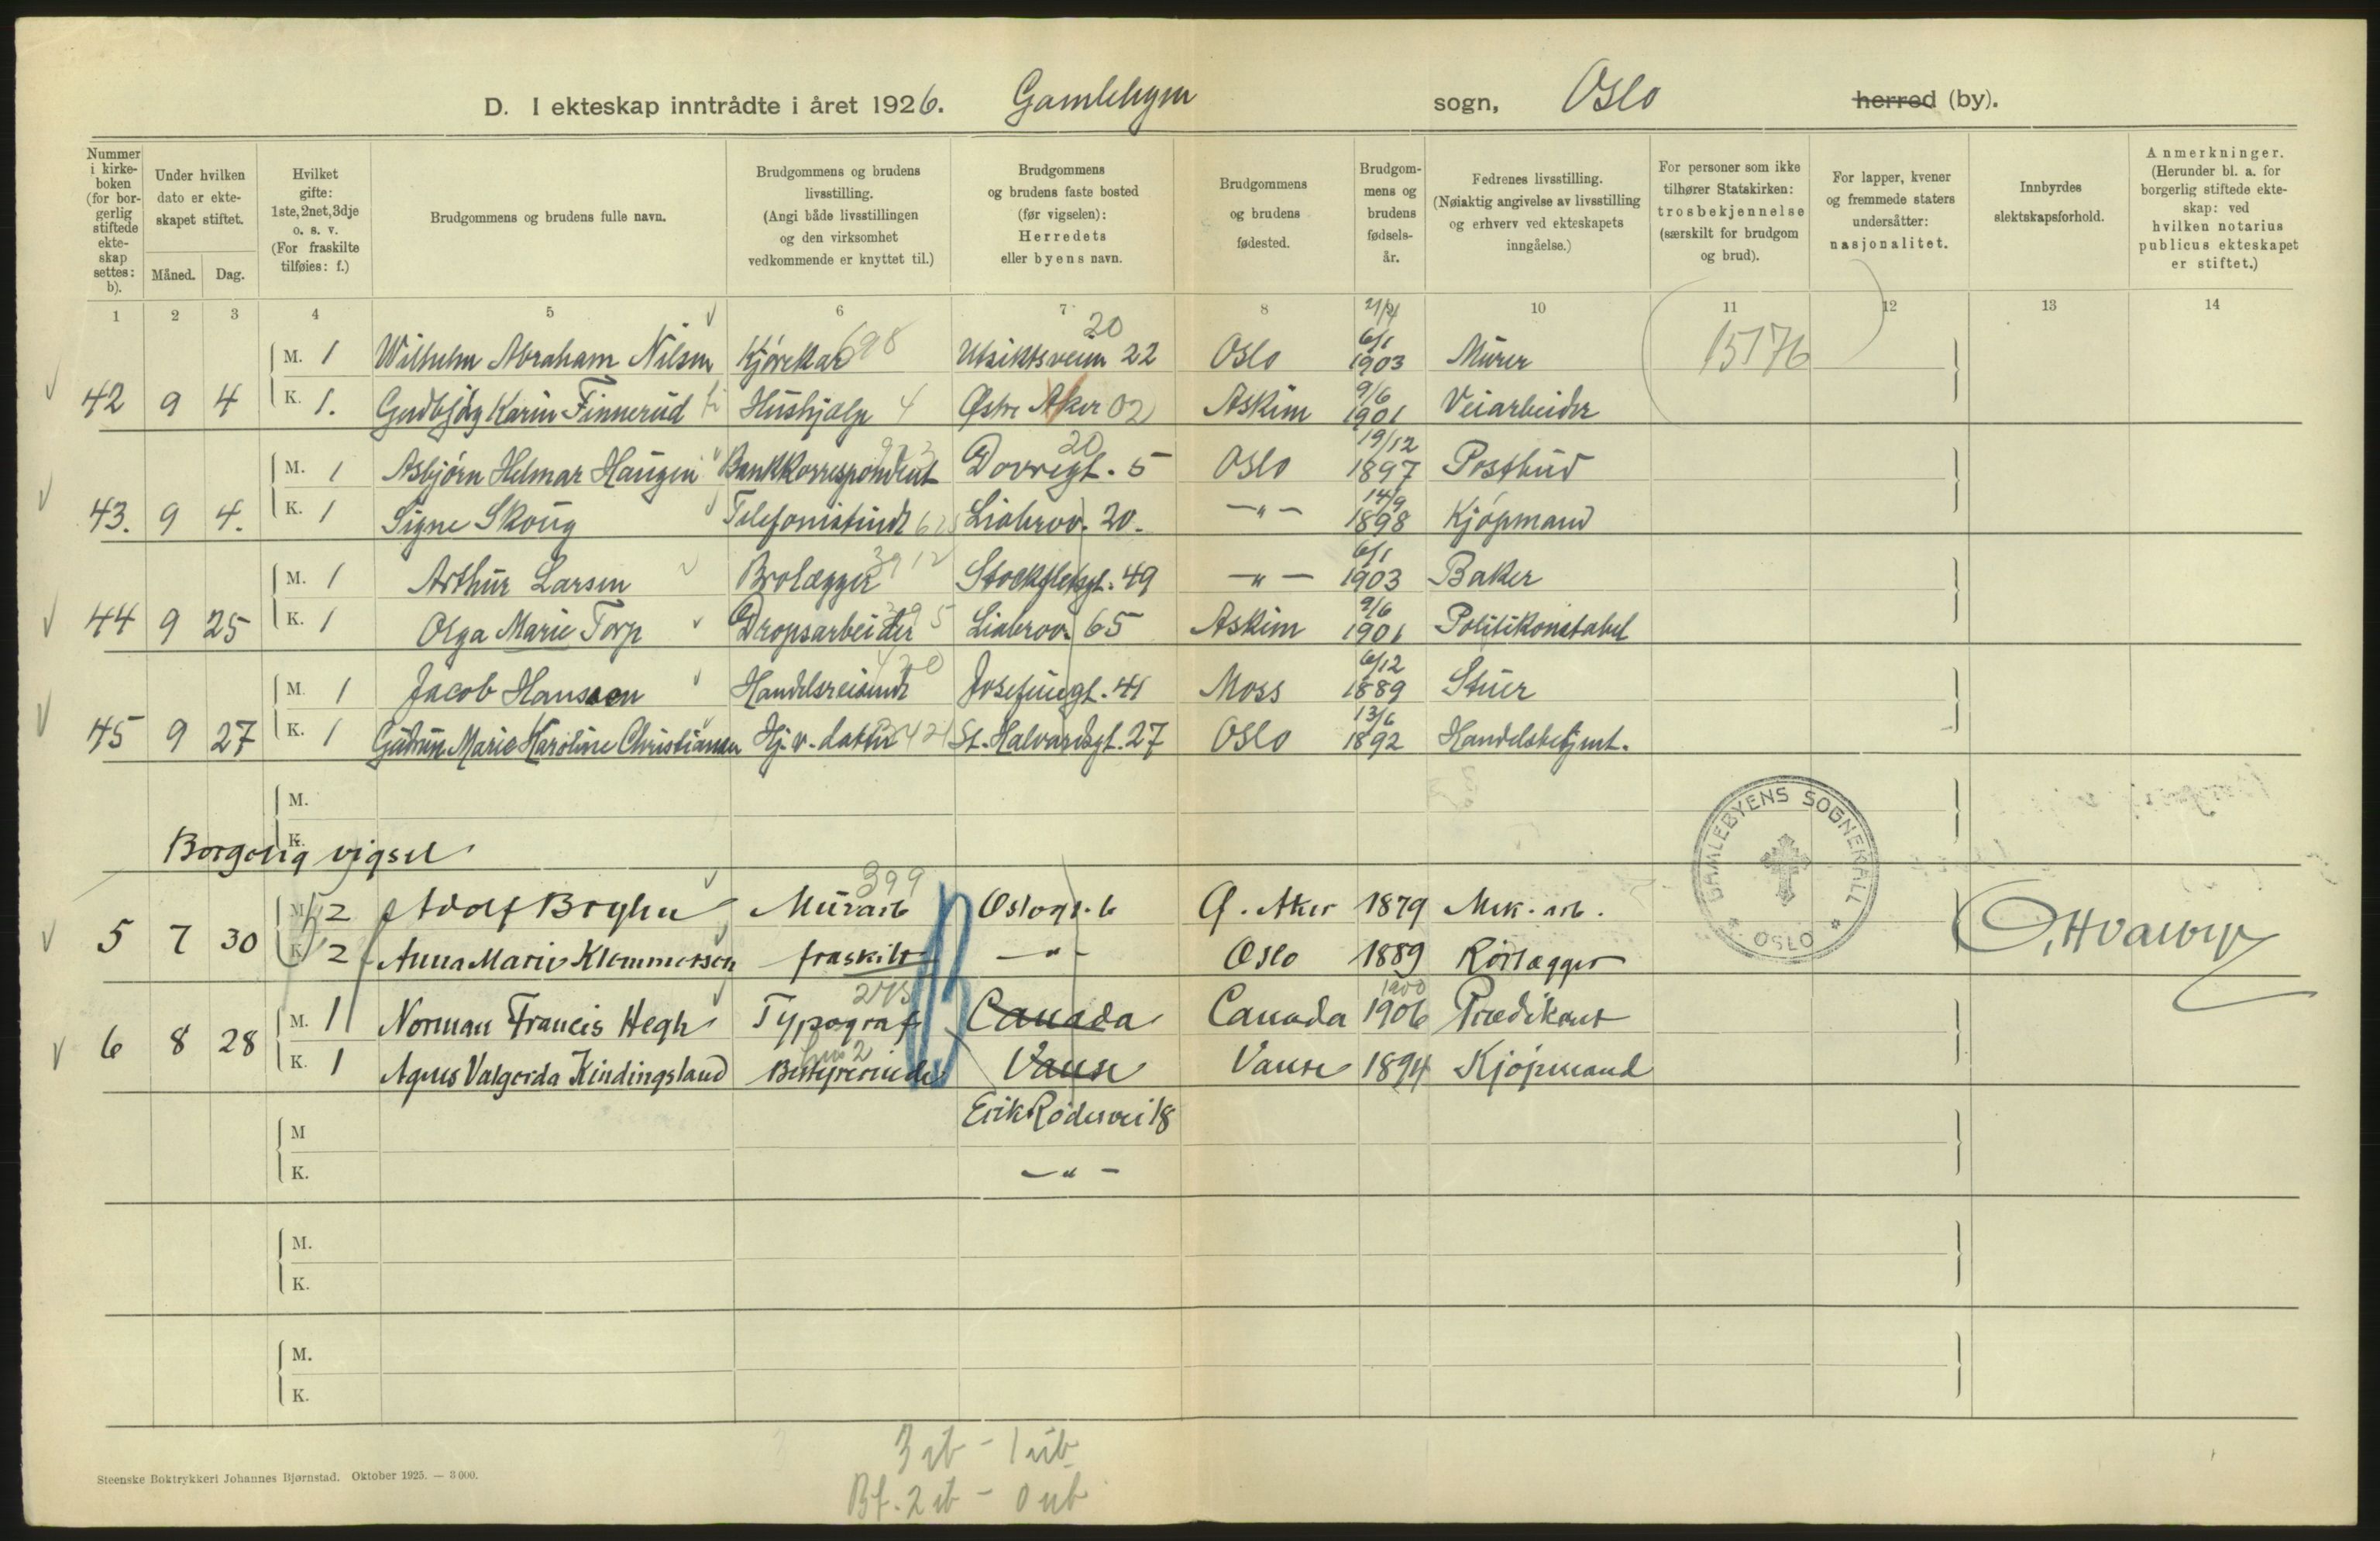 D. I ekteskap inntrådte i året 1926. Gamlebyen sogn, Oslo herred (by).
Nummer i kirkeboken (for borgerlig stiftede ekteskap settes: b).
Under hvilken dato er ekteskapet stiftet.
Måned. Dag.
Hvilket gifte: 1ste, 2net, 3dje o. s. v. (For fraskilte tilføies: f.)
Brudgommens og brudens fulle navn.
Brudgommens og brudens livsstilling. (Angi både livsstillingen og den virksomhet vedkommende er knyttet til.)
Brudgommens og brudens faste bosted (før vigselen): Herredets eller byens navn.
Brudgommens og brudens fødested.
Brudgommens og brudens fødselsår.
Fedrenes livsstilling. (Nøiaktig angivelse av livsstilling og erhverv ved ekteskapets inngåelse.)
For personer som ikke tilhører Statskirken: trosbekjennelse (særskilt for brudgom og brud).
For lapper, kvener og fremmede staters undersåtter: nasjonalitet.
Innbyrdes slektskapsforhold.
Anmerkninger. (Herunder bl. a. for borgerlig stiftede ekteskap: ved hvilken notarius publicus ekteskapet er stiftet.)
1 2 3 4 5 6 7 8 10 11 12 13 14
M. 1 Wilhelm Abraham Nilsen Kjørekar 698 Utsiktsveien 22 20 Oslo 6/1 1903 Murer 15176
42 9 4 K. 1. Gudbjørg Karin Finnerud Hushjælp 4 Østre Aker 02 Askim 9/6 1901 Veiarbeider
M. 1 Asbjørn Helmar Haugen Bankkorrespondent Dovregt. 5 20 Oslo 19/12 1897 Postbud
43. 9 4. K. 1 Signe Skoug Telefonistinde Liabrov. 20. —"— 14/9 1898 Kjøpmand
M. 1 Arthur Larsen Brolægger 3912 Stockfletsgt. 49 —"— 6/1 1903 Baker
44 9 25 K. 1 Olga Marie Torp Dropsarbeider Liabrov. 65 Askim 9/6 1901 Politikonstabel
M. 1 Jacob Hansson Handelsreisende Josefinegt. 41 Moss 6/12 1889 Stuer
45 9 27 K. 1 Gudrun Marie Karoline Christiansen Hj. v. datter St. Halvardsgt. 27 Oslo 13/6 1892 Handelsbetjent.
M.
K.
Borgerlig vigsel
M. 2 Adolf Boghen Murarb 399 Oslogt. 6 Ø. Aker 1879 Mek. arb.
5 7 30 K. 2 Anna Marie Klemmetsen fraskilt —"— Oslo 1889 Rørlægger
GAMLEBYENS SOGNEKALL
OSLO
M. 1 Norman Francis Hegh Typograf Canada Canada 1906 1900 Prædikant
6 8 28 K. 1 Agnes Valgerda Kindingsland Bestyrerinde Vanse Vanse 1894 Kjøpmand
M Erik Rødesvei 18
K. —"—
M.
K.
M.
K.
Steenske Boktrykkeri Johannes Bjørnstad. Oktober 1925. — 3 000.
3 ib - 1 ub
Bf. 2 ib - 0 ub